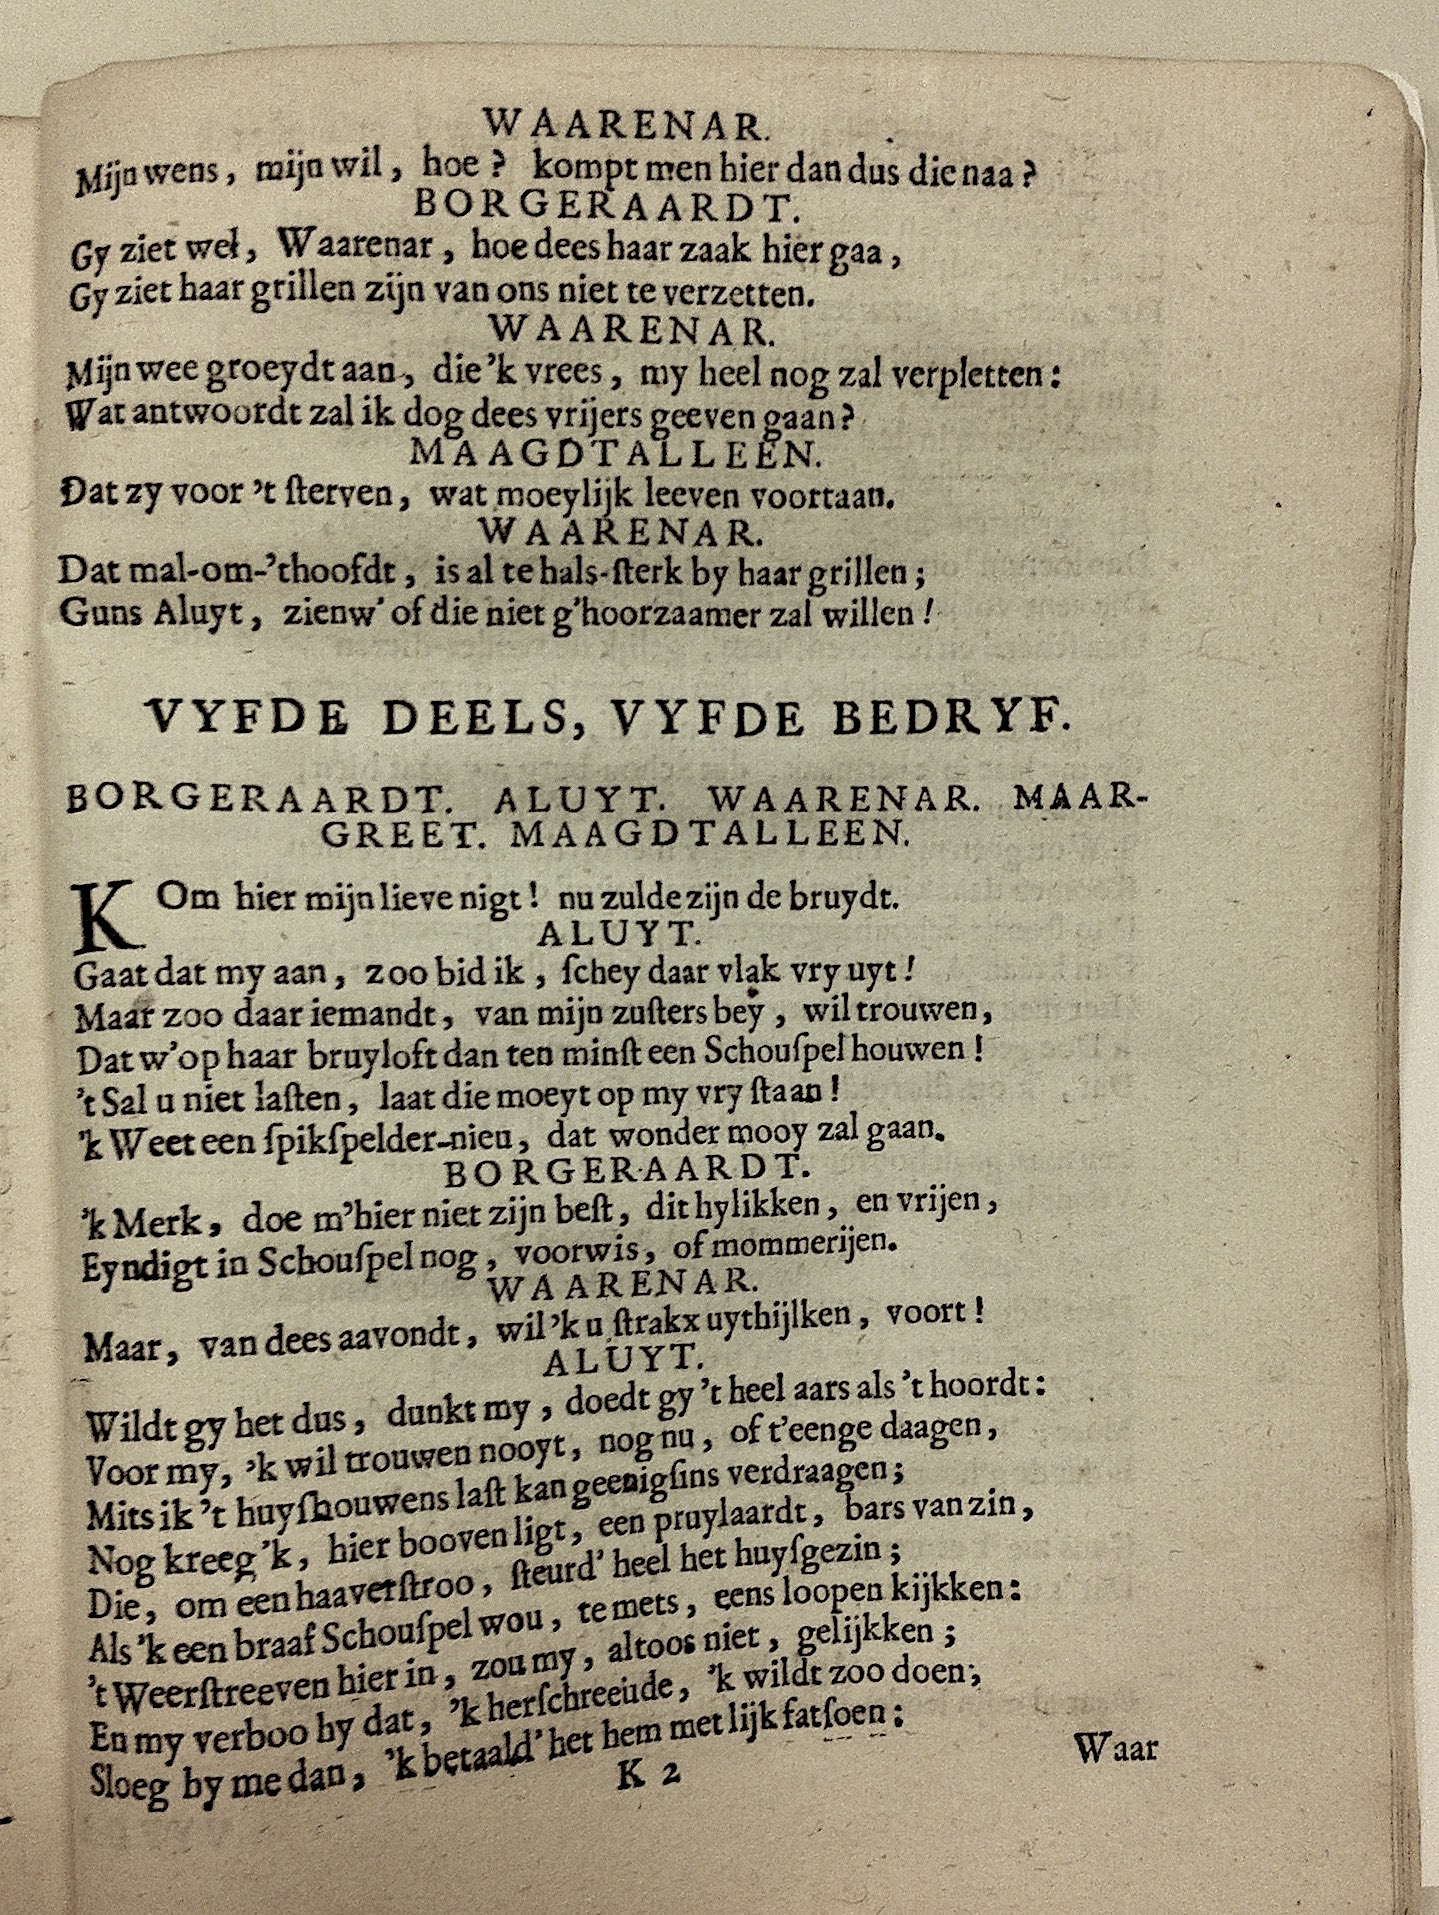 WAARENAR.
Mijn wens, mijn wil, hoe? kompt men hier dan dus die naa?
BORGERAARDT.
Gy ziet wel, Waarenar, hoe dees haar zaak hier gaa,
Gy ziet haar grillen zijn van ons niet te verzetten.
WAARENAR.
Mijn wee groeydt aan, die 'k vrees, my heel nog zal verpletten:
Wat antwoordt zal ik dog dees vrijers geeven gaan?
MAAGDTALLEEN.
Dat zy voor 't ſterven, wat moeylijk leeven voortaan.
WAARENAR.
Dat mal-om-'thoofdt, is al te hals-ſterk by haar grillen;
Guns Aluyt, zienw' of die niet g'hoorzaamer zal willen!
VYFDE DEELS, VYFDE BEDRYF.
BORGERAARDT. ALUYT. WAARENAR. MAAR-
GREET. MAAGDTALLEEN.
KOm hier mijn lieve nigt! nu zulde zijn de bruydt.
ALUYT.
Gaat dat my aan, zoo bid ik, ſchey daar vlak vry uyt!
Maar zoo daar iemandt, van mijn zuſters bey, wil trouwen,
Dat w'op haar bruyloft dan ten minſt een Schouſpel houwen!
't Sal u niet laſten, laat die moeyt op my vry ſtaan!
'k Weet een ſpikſpelder-nieu, dat wonder mooy zal gaan.
BORGERAARDT.
'k Merk, doe m'hier niet zijn beſt, dit hylikken, en vrijen,
Eyndigt in Schouſpel nog, voorwis, of mommerijen.
WAARENAR.
Maar, van dees aavondt, wil 'k u ſtrakx uythijlken, voort!
ALUYT.
Wildt gy het dus, dunkt my, doedt gy 't heel aars als 't hoordt:
Voor my, 'k wil trouwen nooyt, nog nu, of t'eenge daagen,
Mits ik 't huyſhouwens laſt kan geenigſins verdraagen;
Nog kreeg 'k, hier booven ligt, een pruylaardt, bars van zin,
Die, om een haaverſtroo, ſteurd' heel het huyſgezin;
Als 'k een braaf Schouſpel wou, temets, eens loopen kijkken:
't Weerſtreeven hier in, zou my, altoos niet, gelijkken;
En my verboo hy dat, 'k herſchreeude, 'k wildt zoo doen;
Sloeg hy me dan, 'k betaald' het hem met lijk fatſoen:
K 2
Waar